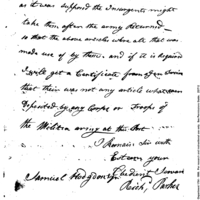 as it was supposed the Insurgents might
take them after the army returned
so that the above articles where all that was
made use of by them. and if it is required
I will get a Certificate from
that there was not any article whatsoever
deposited by any Corps or Troops of
the Militia army at this Post
I Remain Sir with
Esteem your
Obedient Servant
Samuel Hodgdon Esqr
Richd. Parker